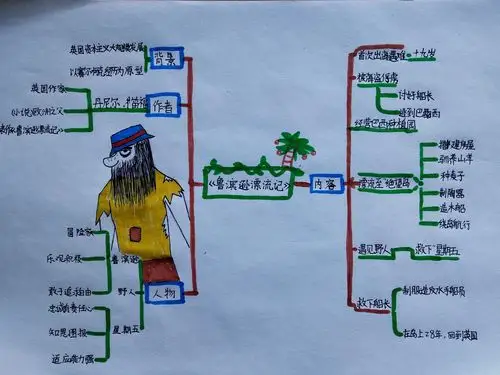 《鲁滨逊漂流记》
背景
英国资本主义大规模发展
作者
丹尼尔·笛福
英国作家
人物
鲁滨逊
冒险家
乐观积极
敢于追求自由
野人
星期五
忠诚有责任心
知恩图报
适应能力强
内容
首次出海遇难
十九岁
被海盗俘虏
讨好船长
逃到巴西
经营巴西种植园
漂流至"绝望岛"
搭建房屋
驯养山羊
种麦子
制陶器
造木船
绕岛航行
遇见野人
救下"星期五"
救下船长
制服造反水手船员
在岛上28年，回到英国